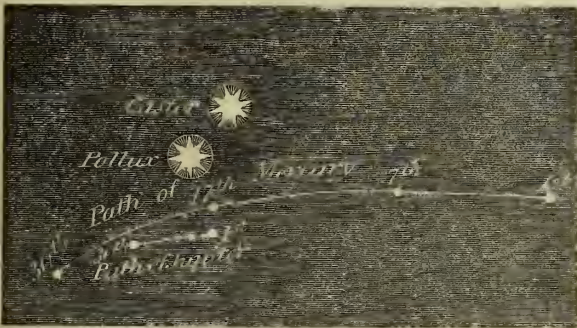 Castor
Pollux
Path of Mercury
17th
7th
1st
1st
Path of Jupiter